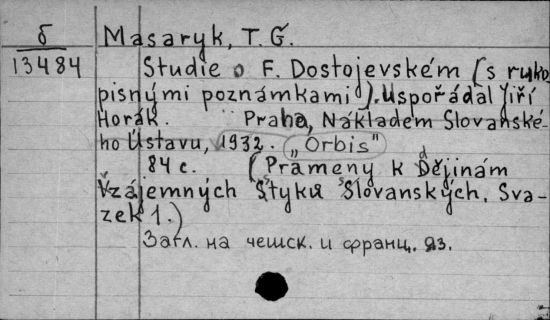 б
13484
Masaryk, T. G.
Studie o F. Dostojevském (s ruko
pisnými poznámkami). Uspořádal Jiří
Horák. Praha, Nákladem Slovanské-
ho Ústavu, 1932. „Orbis"
84 с. (Prameny k Dějinám
Vzájemných Styků Slovanských. Sva-
zek 1.)
Загл. на чешск. и франц. яз.